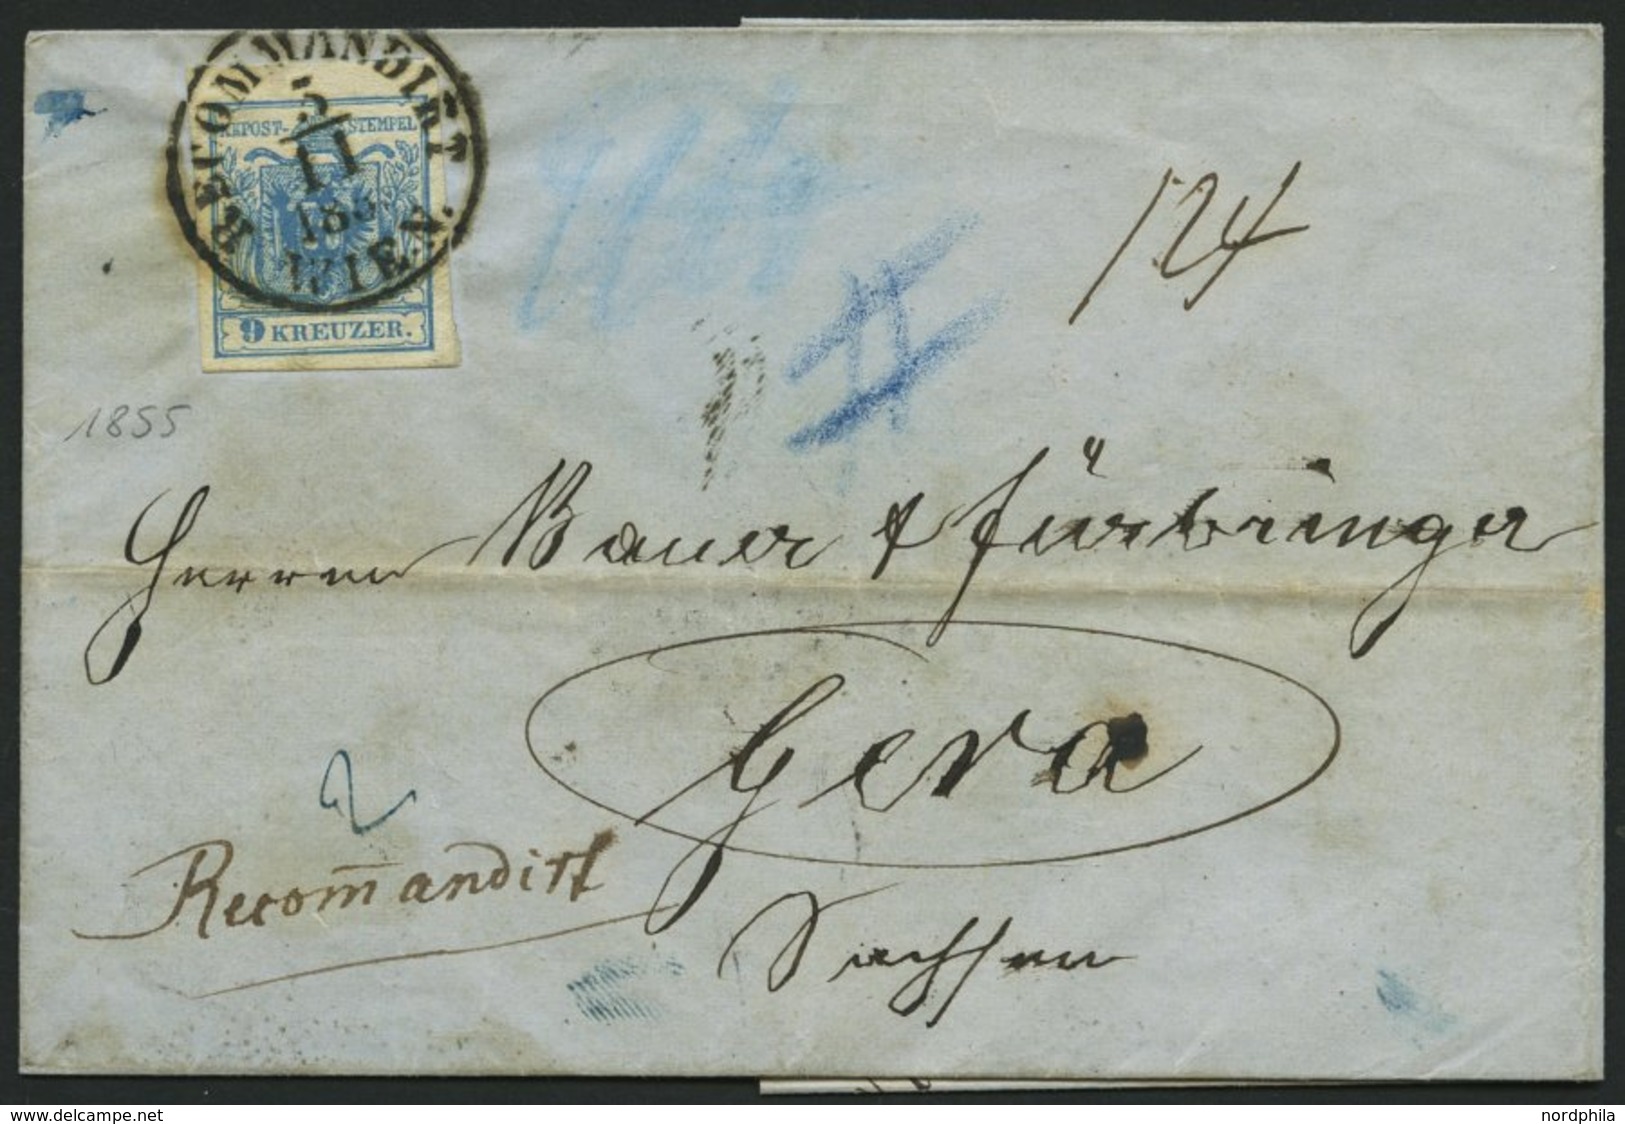 RECOMMANDIRT
5
11
185
WIEN.
KKPOST-STEMPEL
9 KREUZER.
1855
124
Herren Bauer & Fürbringer
Gera
2
Recommandirt
Sachsen
www.delcampe.net
nordphila